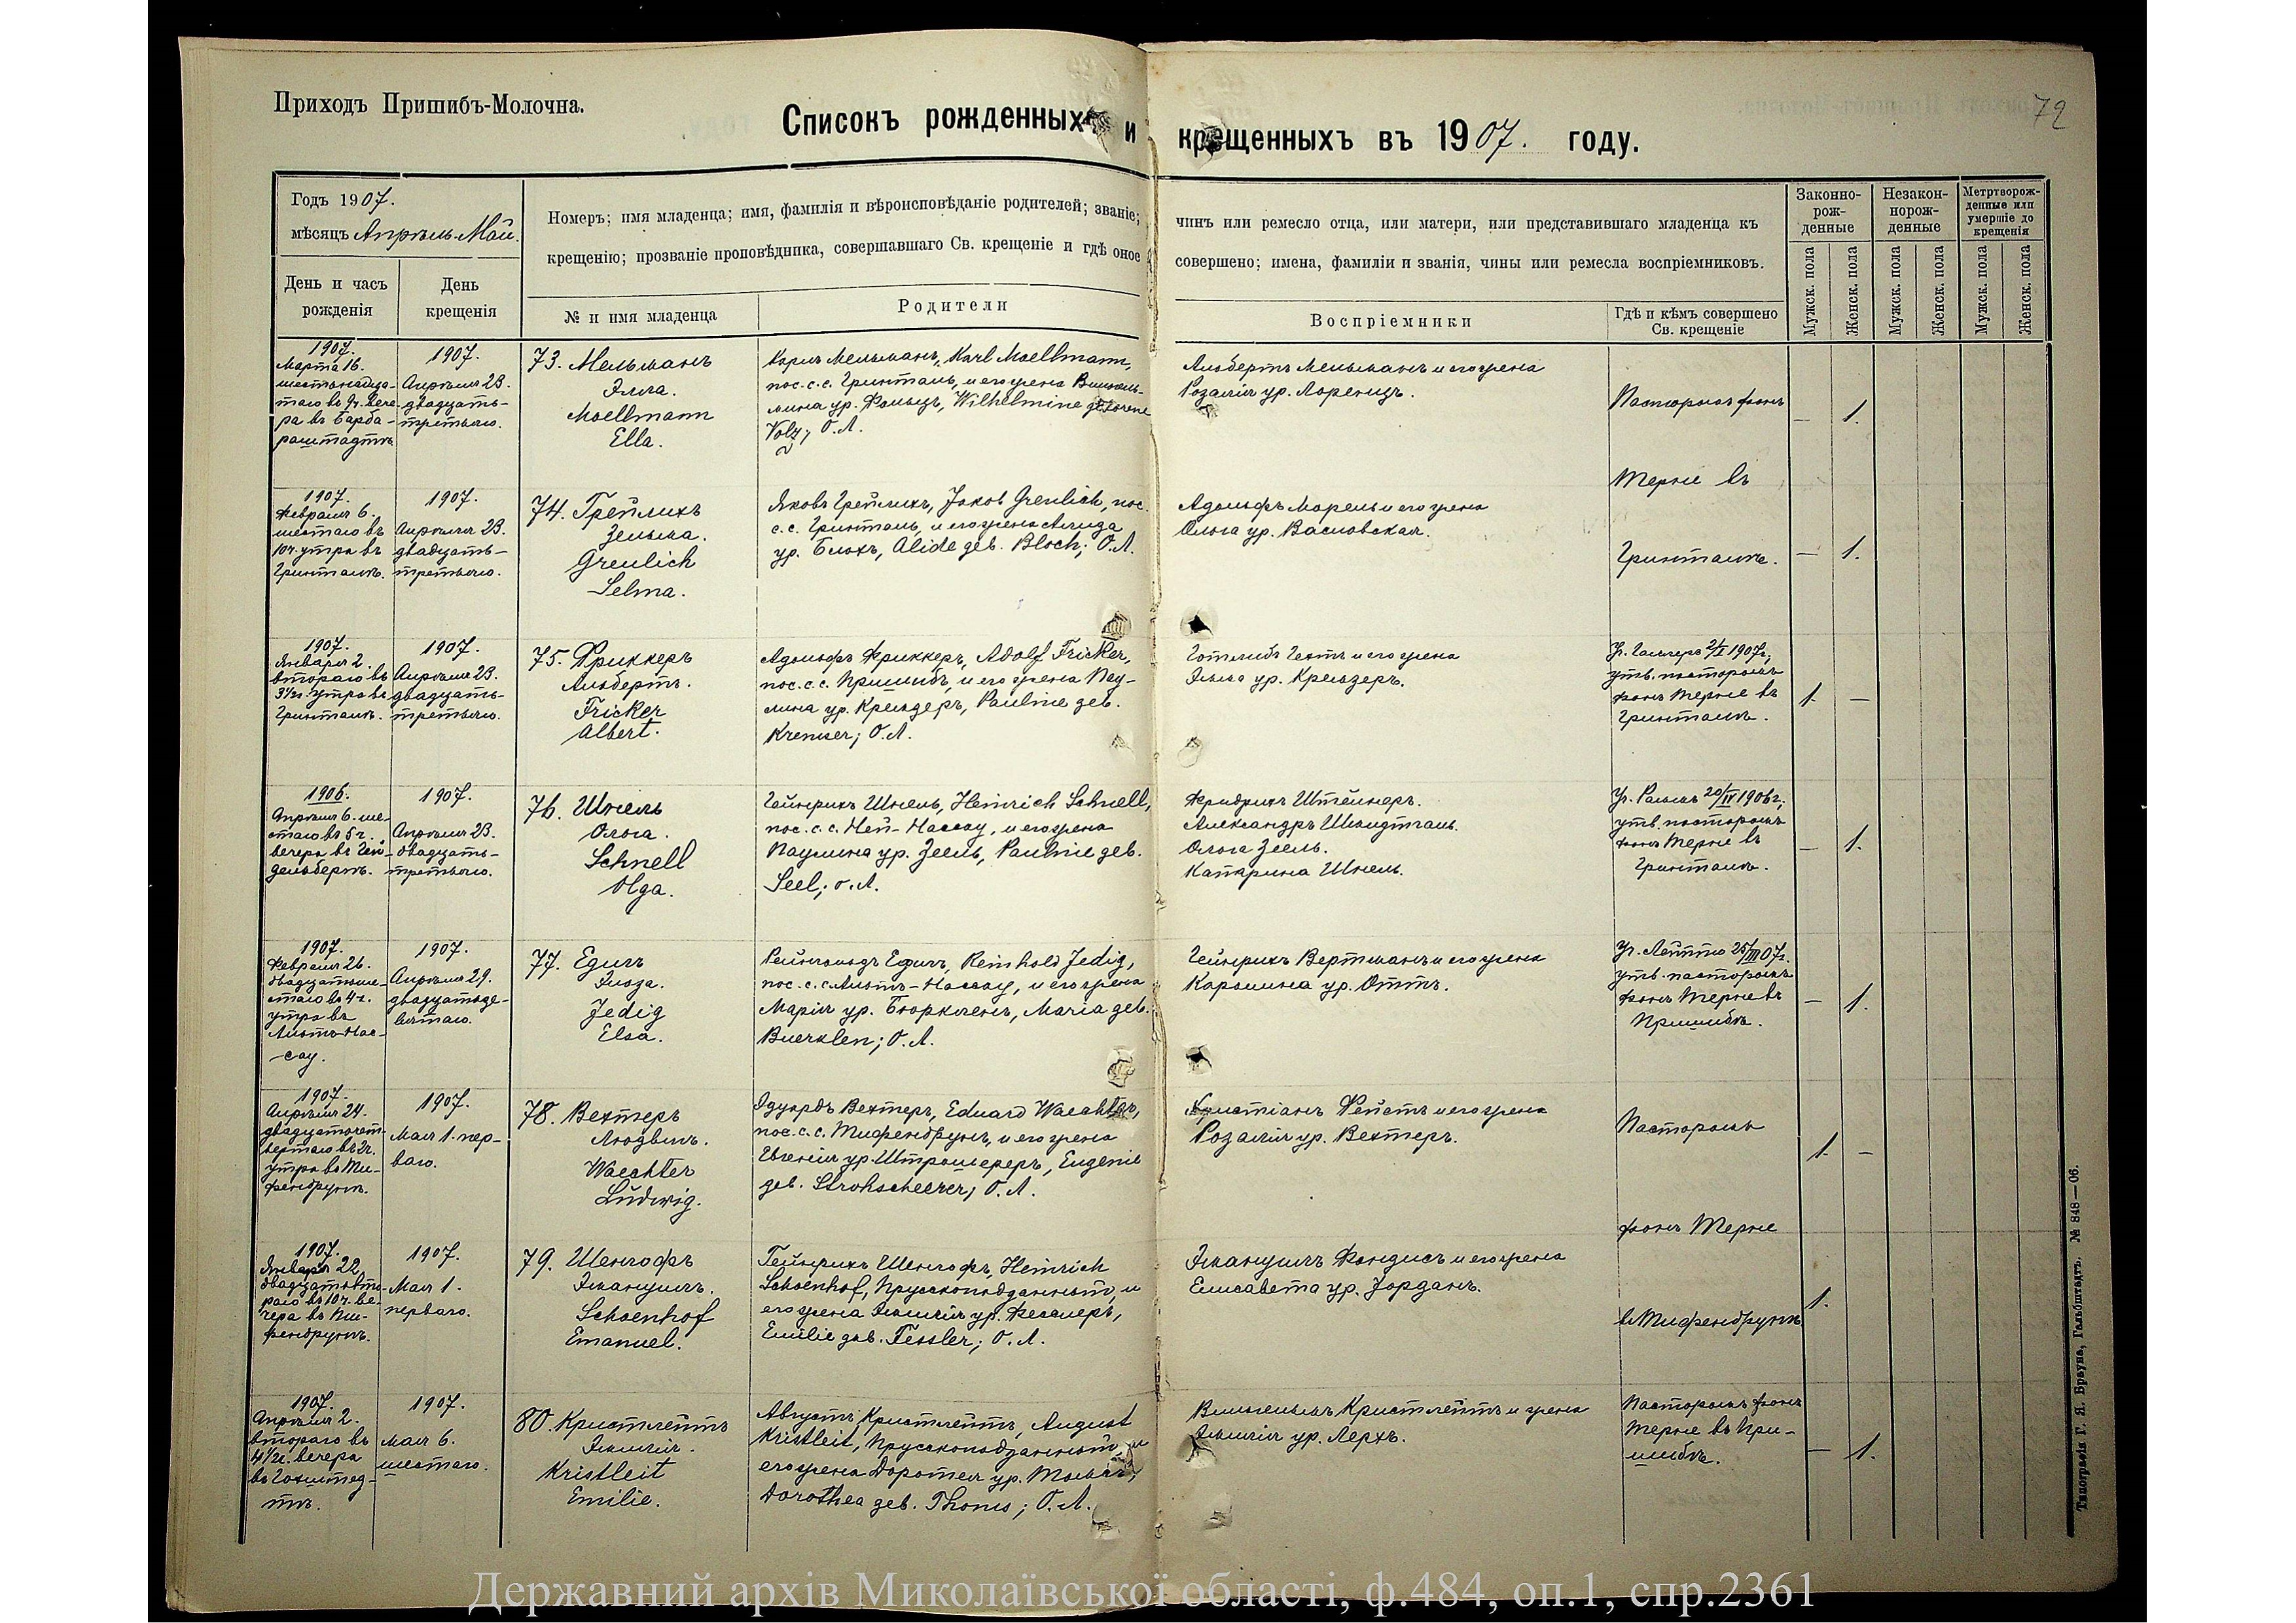 Приходъ Пришибъ-Молочна.
72
Списокъ рожденныхъ и крещенныхъ въ 1907. году.
Годъ 1907.
мѣсяцъ Апрѣль-Май.
День и часъ рожденія
День крещенія
Номеръ; имя младенца; имя, фамилія и вѣроисповѣданіе родителей; званіе; чинъ или ремесло отца, или матери, или представившаго младенца къ
крещенію; прозваніе проповѣдника, совершавшаго Св. крещеніе и гдѣ оное совершено; имена, фамиліи и званія, чины или ремесла воспріемниковъ.
№ и имя младенца
Родители
Воспріемники
Гдѣ и кѣмъ совершено
Св. крещеніе
Законно-
рож-
денные
Незакон-
норож-
денные
Метртворож-
денные или
умершіе до
крещенія
Мужск. пола
Женск. пола
Мужск. пола
Женск. пола
Мужск. пола
Женск. пола
1907.
Марта 16.
шестьнадца-
таго въ 9ч. вече-
ра въ Барба-
раштадтѣ
1907.
Апрѣля 23.
двадцать-
третьяго.
73. Мельманъ
Элла.
Moellmann
Ella.
Карлъ Мельманъ, Karl Moellmann,
пос. с. с. Гринталь, и его жена Вильгель-
мина ур. Фольцъ, Wilhelmine geborene
Volz; О.Л.
Альбертъ Мельманъ и его жена
Розалія ур. Лоренцъ.
Пасторомъ фонъ
— 1.
1907.
Февраля 6.
шестаго въ
10ч. утра въ
Гринталѣ.
1907.
Апрѣля 23.
двадцать-
третьяго.
74. Грейлихъ
Зельма.
Greulich
Selma.
Яковъ Грейлихъ, Jakob Greulich, пос.
с. с. Гринталь, и его жена Алида
ур. Блохъ, Alide geb. Bloch; О.Л.
Адольфъ Морель и его жена
Ольга ур. Василовская.
Терне въ
Гринталѣ.
— 1.
1907.
Января 2.
втораго въ
3½ч. утра въ
Гринталѣ.
1907.
Апрѣля 23.
двадцать-
третьяго.
75. Фриккеръ
Альбертъ.
Fricker
Albert.
Адольфъ Фриккеръ, Adolf Fricker,
пос. с. с. Пришибъ, и его жена Пау-
лина ур. Кремзеръ, Pauline geb.
Kremser; О.Л.
Готлибъ Гехтъ и его жена
Эмма ур. Кремзеръ.
утв. пасторомъ
фонъ Терне въ
Гринталѣ.
1. —
1906.
Апрѣля 6. ше-
стаго въ 5 ч.
вечера въ Гей-
дельбергѣ.
1907.
Апрѣля 23.
двадцать-
третьяго.
76. Шнель
Ольга.
Schnell
Olga.
Гейнрихъ Шнель, Heinrich Schnell,
пос. с. с. Ней-Нассау, и его жена
Паулина ур. Зеель, Pauline geb.
Seel; О.Л.
Фридрихъ Штейнеръ.
Александръ Шмидтгаль.
Ольга Зеель.
Катарина Шнель.
20/IV 1906 г.;
утв. пасторомъ
фонъ Терне въ
Гринталѣ.
— 1.
1907.
Февраля 26.
двадцатьше-
стаго въ 4 ч.
утра въ
Альтъ-Нас-
-сау.
1907.
Апрѣля 29.
двадцатьде-
вятаго.
77. Едигъ
Эльза.
Jedig
Elsa.
Рейнгольдъ Едигъ, Reinhold Jedig,
пос. с. с. Альтъ-Нассау, и его жена
Марія ур. Бюркленъ, Maria geb.
Buerklen; О.Л.
Гейнрихъ Вертманъ и его жена
Каролина ур. Оттъ.
25/III 07г.
утв. пасторомъ
фонъ Терне въ
Пришибѣ.
— 1.
1907.
Апрѣля 24.
двадцатьчет-
вертаго въ 2ч.
утра въ Ти-
фенбрунѣ.
1907.
Мая 1. пер-
ваго.
78. Вехтеръ
Людвигъ.
Waechter
Ludwig.
Эдуардъ Вехтеръ, Eduard Waechter,
пос. с. с. Тифенбрунъ, и его жена
Евгенія ур. Штрошереръ, Eugenie
geb. Strohscheerer; О.Л.
Христіанъ Фейстъ и его жена
Розалія ур. Вехтеръ.
Пасторомъ
1. —
1907.
Января 22.
двадцатьвто-
раго въ 10ч. ве-
чера въ Ти-
фенбрунѣ.
1907.
Мая 1.
перваго.
79. Шенгофъ
Эмануилъ.
Schoenhof
Emanuel.
Гейнрихъ Шенгофъ, Heinrich
Schoenhof, Прусскоподданный, и
его жена Эмилія ур. Фесслеръ,
Emilie geb. Fessler; О.Л.
Эмануилъ Фондисъ и его жена
Елисавета ур. Іорданъ.
фонъ Терне
въ Тифенбрунѣ
1.
1907.
Апрѣля 2.
втораго въ
4½ч. вечера
въ Гохштед-
тѣ.
1907.
Мая 6.
шестаго.
80. Кристлейтъ
Эмилія.
Kristleit
Emilie.
Августъ Кристлейтъ, August
Kristleit, Прусскоподданный, и
его жена Доротея ур.
Dorothea geb. Thoms; О.Л.
Вильгельмъ Кристлейтъ и жена
Эмилія ур. Лерхъ.
Пасторомъ фонъ
Терне въ При-
шибѣ.
— 1.
Типографія Г. Я. Брауна, Гальбштадтъ. № 848—06.
Державний архів Миколаївської області, ф.484, оп.1, спр.2361